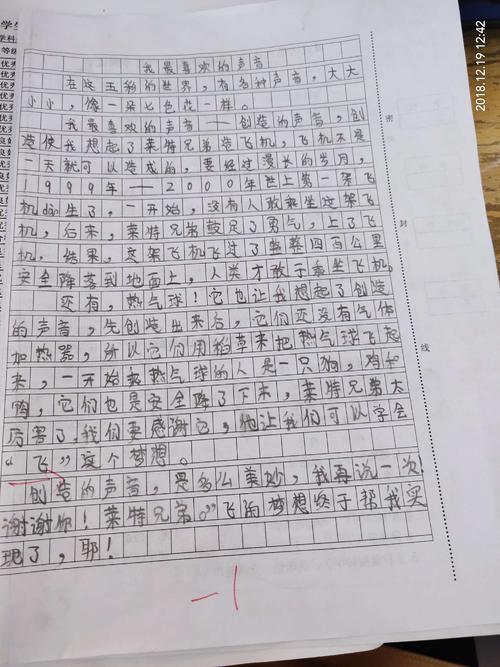 2018.12.19 12:42
学生
学科
等级
优秀
优秀
优秀
优秀
我最喜欢的声音
在这五彩的世界,有各种声音,大大
小小,像一朵七色花一样。
我最喜欢的声音——创造的声音,创
造使我想起了莱特兄弟造飞机,飞机不是
一天就可以造成的,要经过漫长的岁月,
1999年——2000年世上第一架飞
机dàn生了。一开始,没有人敢乘坐这架飞
机,后来,莱特兄弟鼓足了勇气,上了飞
机,结果,这架飞机飞过了整整四百公里
安全降落到地面上,人类才敢于乘坐飞机。
还有,热气球!它也让我想起了创造
的声音,先创造出来后,它们还没有气体
加热器,所以它们用稻草来把热气球飞起
来,一开始乘热气球的人是一只狗,鸡和
鸭,它们也是安全降了下来,莱特兄弟太
厉害了,我们要感谢它,他让我们可以学会
“飞”这个梦想。
创造的声音,是多么美妙,我再说一次:
谢谢你!莱特兄弟。”飞的梦想终于帮我实
现了,耶!
密
封
线
-1